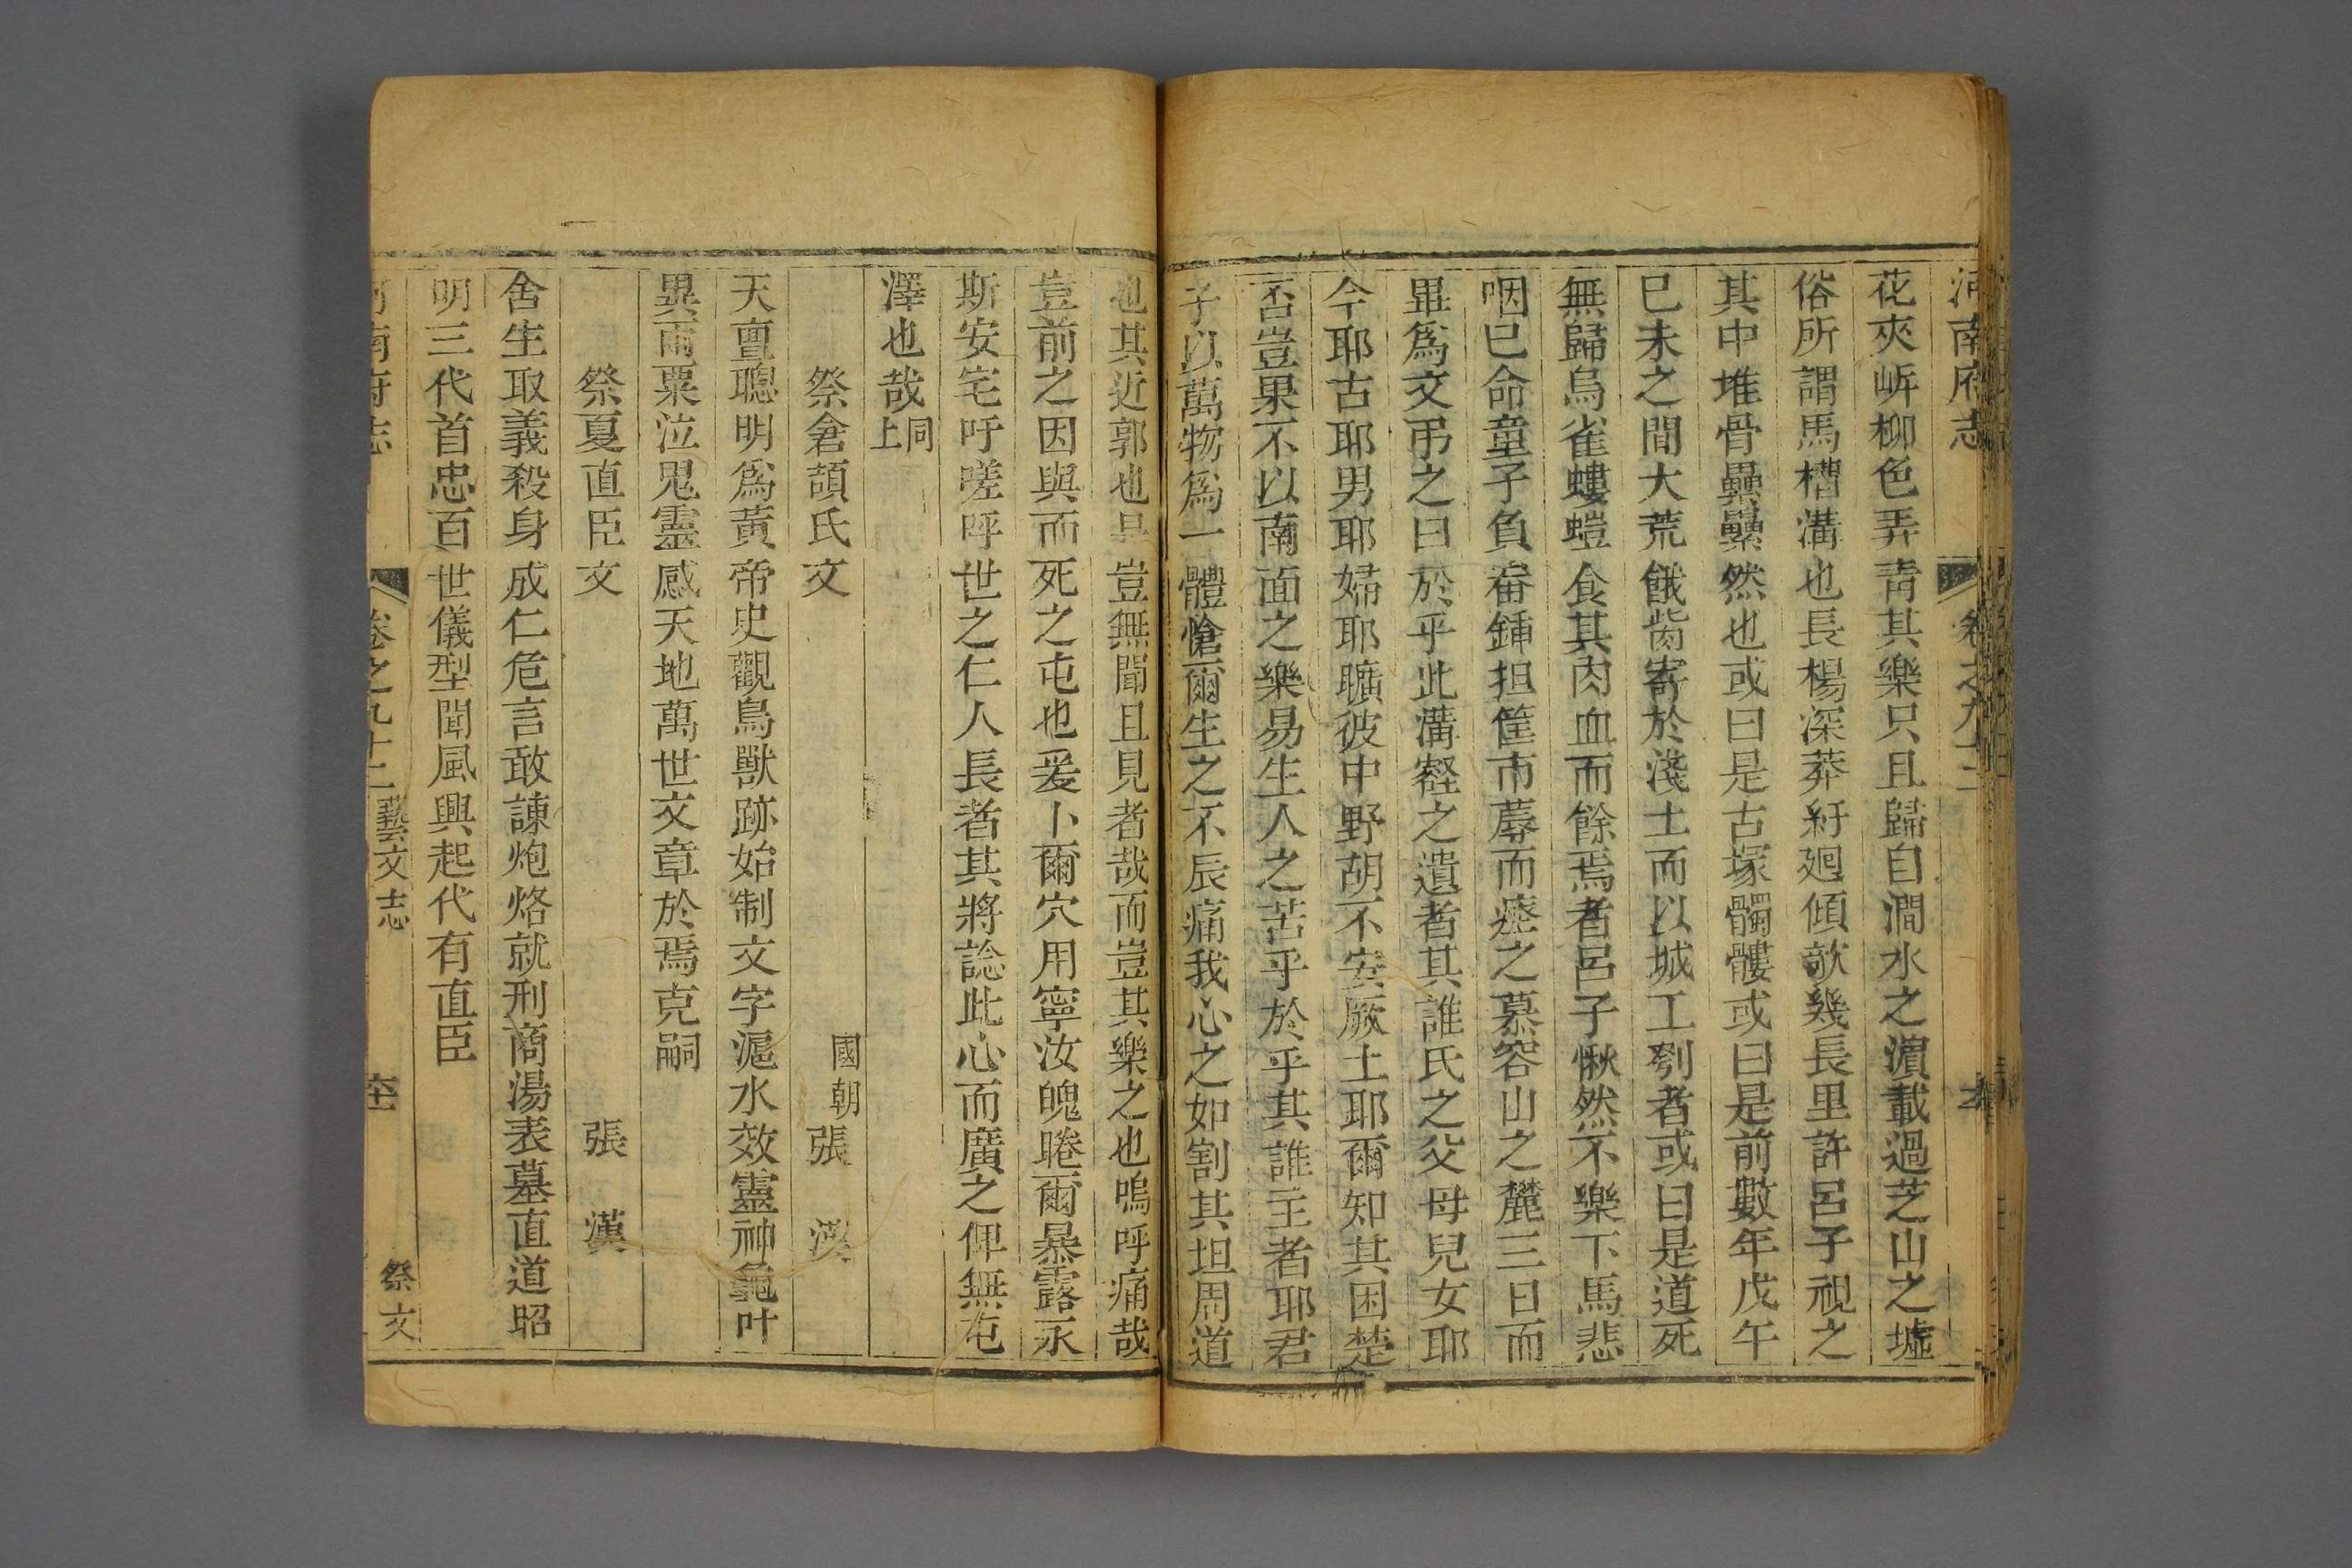 河南府志 卷之九十二
花夾岍柳色弄青其樂只且歸自澗水之濵載過芝山之墟
俗所謂馬槽溝也長楊深莽紆廻傾欹幾長里許呂子視之
其中堆骨纍纍然也或曰是古塚髑髏或曰是前數年戊午
巳未之間大荒餓胔寄於淺土而以城工刳者或曰是道死
無歸烏雀螻螘食其肉血而餘焉者呂子愀然不樂下馬悲
咽已命童子負畚鍤担筐市蓐而瘞之慕容山之麓三日而
畢爲文弔之曰於乎此溝壑之遺者其誰氏之父母兒女耶
今耶古耶男耶婦耶曠彼中野胡不安厥土耶爾知其困楚
否豈果不以南面之樂易生人之苦乎於乎其誰主者耶君
子以萬物爲一體愴爾生之不辰痛我心之如割其坦周道
也其近郭也昰豈無聞且見者哉而豈其樂之也嗚呼痛哉
豈前之因與而死之屯也爰卜爾穴用寧汝魄睠爾暴露永
斯安宅吁嗟呼世之仁人長者其將諗此心而廣之俾無屯
澤也哉同上
祭倉頡氏文 國朝張 漢
天亶聰明爲黃帝史觀鳥獸跡始制文字滬水效靈神龜叶
異雨粟泣鬼靈感天地萬世文章於焉克嗣
祭夏直臣文 張 漢
舍生取義殺身成仁危言敢諫炮烙就刑商湯表墓直道昭
明三代首忠百世儀型聞風興起代有直臣
河南府志 卷之九十二 藝文志 祭文